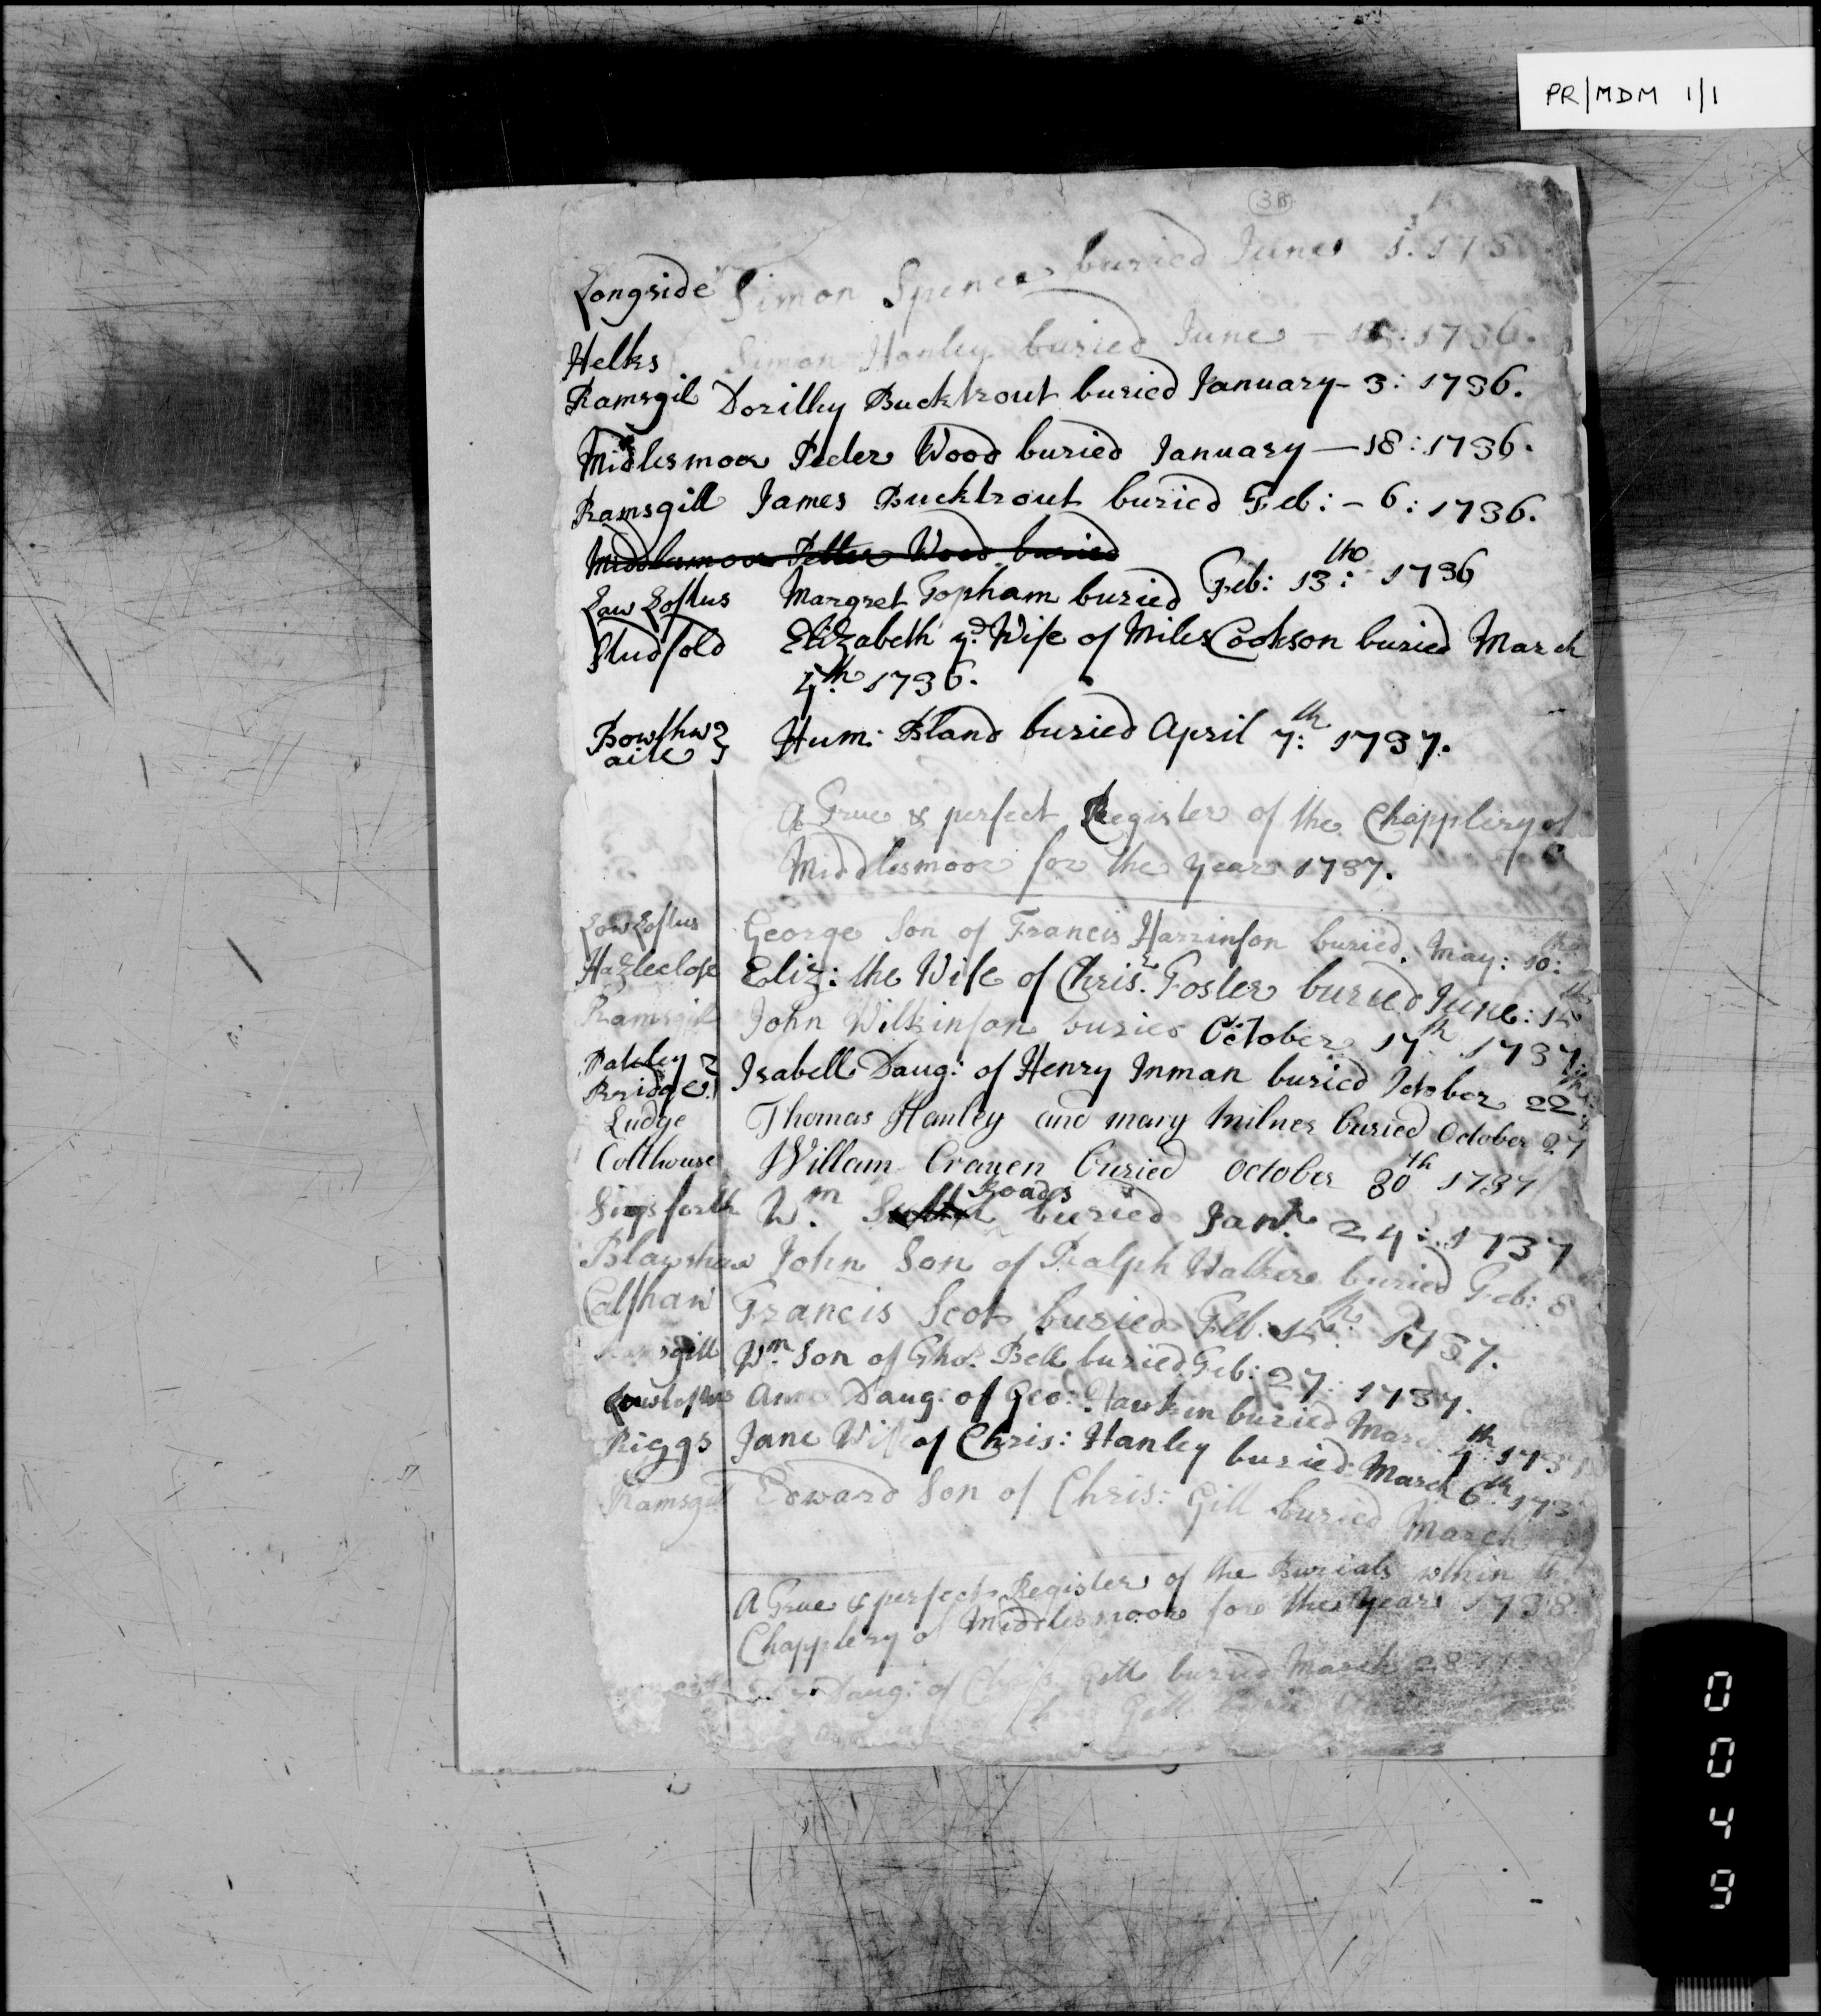 PR/MDM 1/1
38
Longside Simon Spence buried June 1: 173
Helks Simon Hanley buried June - 1736.
Ramsgil Dorithy Bucktrout buried January - 3: 1736.
Midlesmoor Peeter Wood buried January — 18: 1736.
Ramsgill James Bucktrout buried Feb: - 6: 1736.
Middlesmoor Petter Wood buried
Law Loftus Margret Topham buried Feb: 13:th 1736
Studfold Elizabeth ye Wife of Miles Cookson buried March
4th 1736.
Bowthw
aite Hum: Bland buried April 7:th 1737.
A True & perfect Register of the Chapplery of
Middlesmoor for the Year 1737.
Low Loftus George Son of Francis Harrinson buried May: 10:th
Hazleclose Eliz: the Wife of Chris:r Foster buried June: 15th
Ramsgil John Wilkinson buried October 17th 1737
Pateley
Bridge Isabell Daug: of Henry Inman buried October 22
Ludge Thomas Hanley and mary Milner buried October 27
Colthouse Willam Craven buried October 30th 1737
Sigsforth Wm Roads buried Janr 24: 1737
Blawshaw John Son of Ralph Walker buried Feb: 8
Calfhaw Francis Scot buried Feb: 15th 1737.
Ramsgill Wm Son of Tho: Bell buried Feb: 27: 1737.
Lawloftus Daug: of Geo: Hawken buried Mar 4th 173
Riggs Jane Wife of Chris: Hanley buried March 6th 173
Ramsgill Edward Son of Chris: Gill buried March
A True & perfect Register of the Burials within the
Chapplery of Middlesmoor for the Year 1738
Daug: of Gill buried March 28
Gill
0049